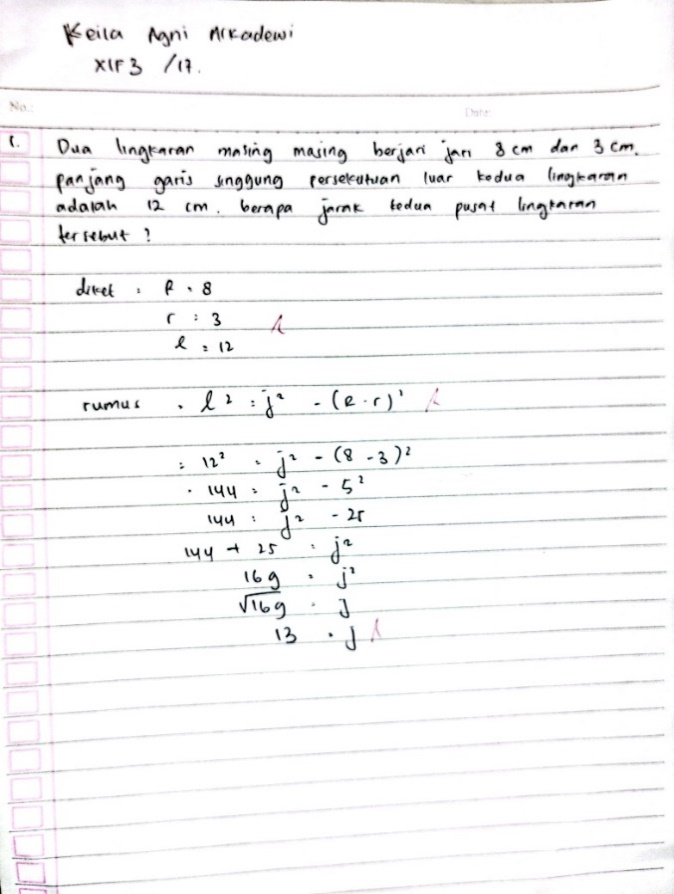 Keila Agni Arkadewi
XIF3 /17.
No.:
Date:
1. Dua lingkaran masing masing berjari jari 8 cm dan 3 cm.
panjang garis singgung persekutuan luar kedua lingkaran
adalah 12 cm. berapa jarak kedua pusat lingkaran
tersebut ?
diket : R = 8
r : 3
l = 12
rumus = l² = j² - (R-r)²
= 12² = j² - (8-3)²
= 144 = j² - 5²
144 = j² - 25
144 + 25 = j²
169 = j²
√169 = j
13 = j